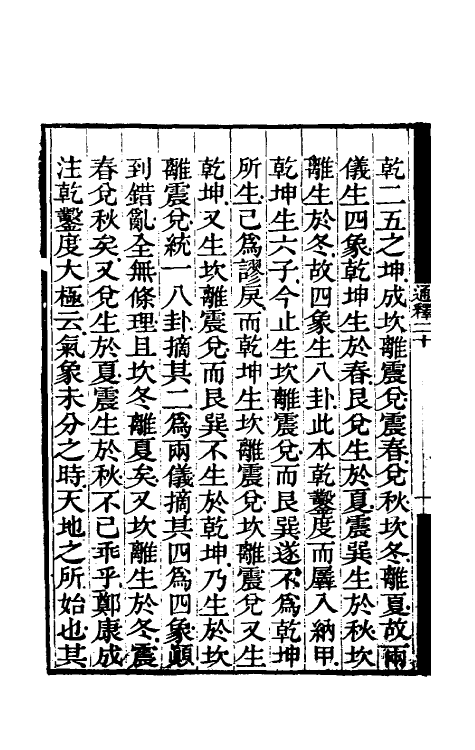 乾二五之坤成坎離震兌震春兌秋坎冬離夏故兩
儀生四象乾坤生於春艮兌生於夏震巽生於秋坎
離生於冬故四象生八卦此本乾鑿度而羼入納甲
乾坤生六子今止生坎離震兌而艮巽遂不爲乾坤
所生己爲謬戾而乾坤生坎離震兌坎離震兌又生
乾坤又生坎離震兌而艮巽不生於乾坤乃生於坎
離震兌統一八卦摘其二爲兩儀摘其四爲四象顚
到錯亂全無條理且坎冬離夏矣又坎離生於冬震
春兌秋矣又兌生於夏震生於秋不己乖乎鄭康成
注乾鑿度大極云氣象未分之時天地之所始也其
通釋二十